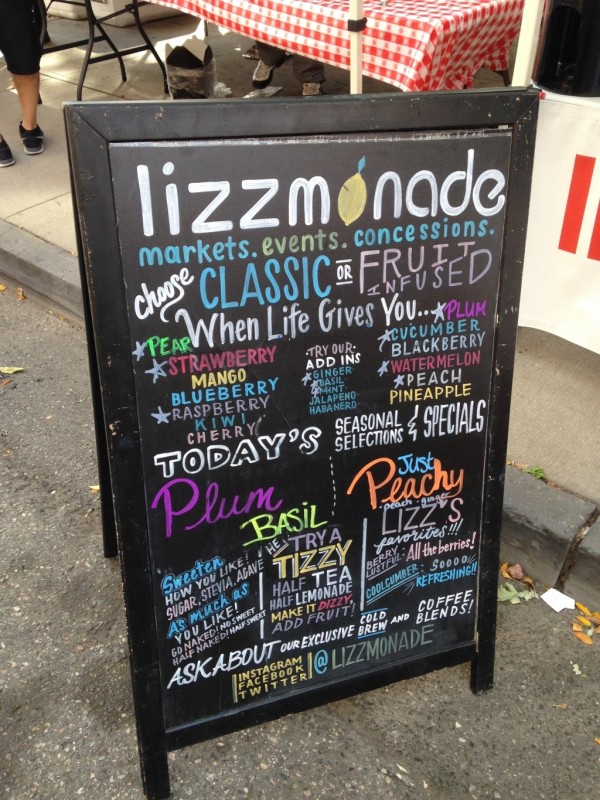 lizzmonade
markets. events. concessions.
choose CLASSIC OR FRUIT INFUSED
When Life Gives You...
PEAR
STRAWBERRY
MANGO
BLUEBERRY
RASPBERRY
KIWI
CHERRY
·TRY OUR·
ADD INS
GINGER
BASIL
MINT
JALAPENO
HABANERO
PLUM
CUCUMBER
BLACKBERRY
WATERMELON
PEACH
PINEAPPLE
TODAY'S
SEASONAL SELECTIONS & SPECIALS
Plum
BASIL
Just
Peachy
peach · ginger
Sweeten
HOW YOU LIKE!
SUGAR, STEVIA, AGAVE
As much as
YOU LIKE!
GO NAKED! NO SWEET
HALF NAKED! HALF SWEET
HE TRY A
TIZZY
HALF TEA
HALF LEMONADE
MAKE IT DIZZY,
ADD FRUIT!
LIZZ'S
favorites!!!
BERRY LUSTFUL: All the berries!
COOLCUMBER: SOOOOO
REFRESHING!!
ASK ABOUT OUR EXCLUSIVE COLD BREW AND COFFEE BLENDS!
INSTAGRAM
FACEBOOK
TWITTER
@LIZZMONADE